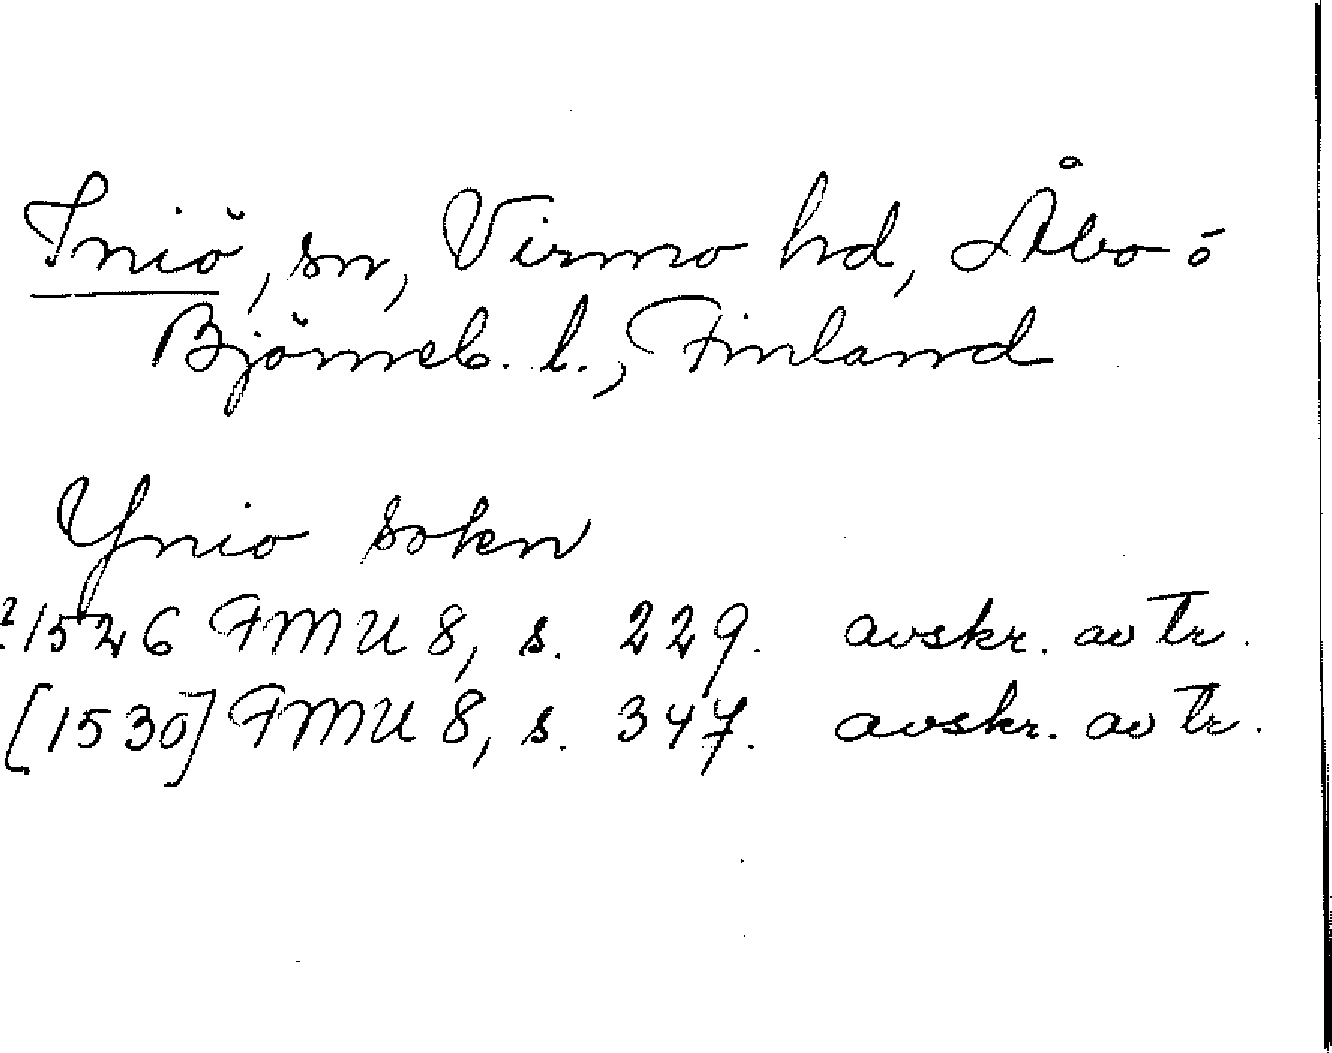 Iniö, sn, Virmo hd, Åbo o
Björneb. l., Finland
Ynio sokn
1526 FMU 8, s. 229. avskr. av tr.
[1530] FMU 8, s. 347. avskr. av tr.